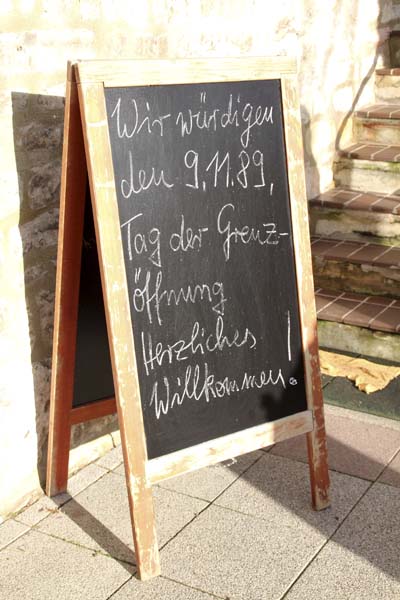 Wir würdigen
den 9.11.89,
Tag der Grenz-
öffnung
Herzliches
Willkommen!